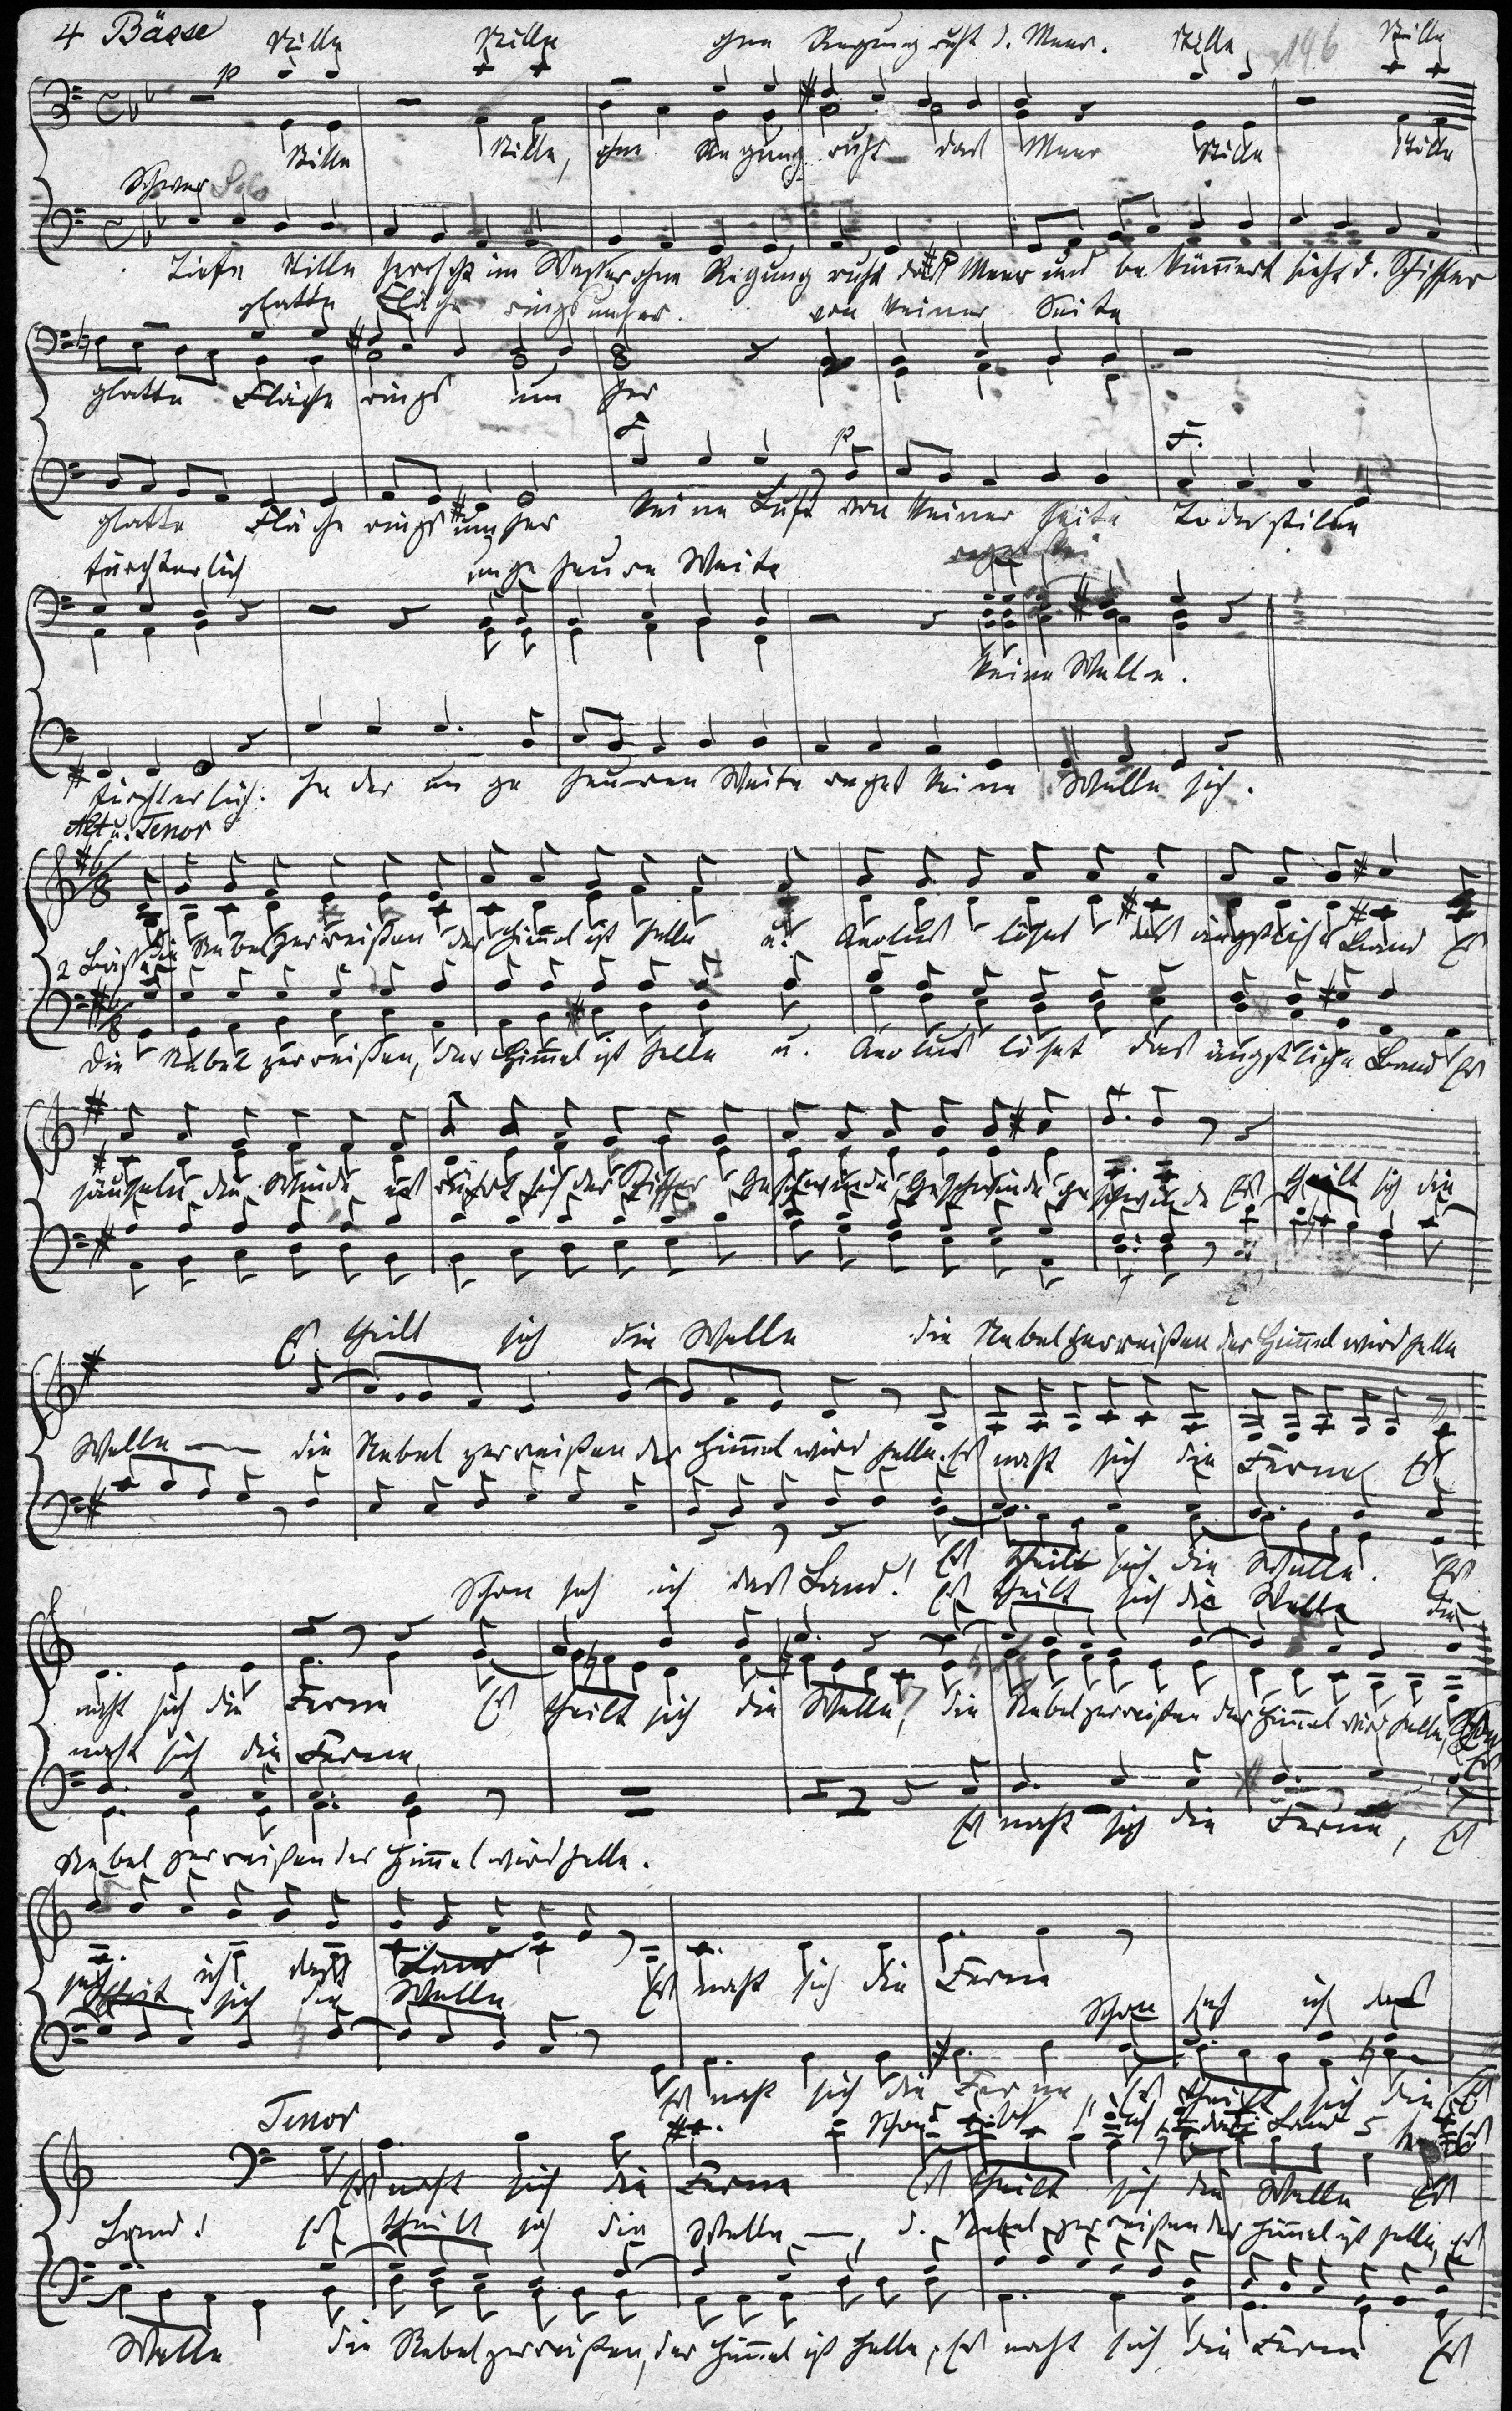 4 Bässe
Stille Stille ohne Regung ruht d. Meer. Stille Stille
146
p
Stille Stille, ohne Regung ruht das Meer Stille Stille
Schwer Solo
Tiefe Stille herrscht im Wasser ohne Regung ruht das Meer und bekümmert sieht d. Schiffer
glatte Fläche rings umher. von keiner Seite
glatte Fläche rings um her
f p F.
glatte Fläche rings umher keine Luft von keiner Seite Todesstille
fürchterlich ungeheure Weite reget kei
keine Welle.
fürchterlich. In der ungeheuren Weite reget keine Welle sich.
Alt u. Tenor
6/8
die Nebel zerreißen der Himmel ist helle u. Aeolus löset das ängstliche Band Es
2 Bässe
6/8
Die Nebel zerreißen, der Himmel ist helle u. Aeolus löset das ängstliche Band Es
säuseln die Winde es rührt sich der Schiffer Geschwinde Geschwinde geschwinde Es theilt sich die
Es theilt sich die Welle die Nebel zerreißen der Himmel wird helle
Welle die Nebel zerreißen der Himmel wird helle. Es naht sich die Ferne Es
Es theilt sich die Welle. Es
Schon seh ich das Land! Es theilt sich die Welle die
naht sich die Ferne Es theilt sich die Welle, die Nebel zerreißen der Himmel wird helle, Schon
naht sich die Ferne, Es
Es naht sich die Ferne, Es
Nebel zerreißen der Himmel wird helle.
seh ich das Land
theilt sich die Welle Es naht sich die Ferne
Schon seh ich das
Es naht sich die Ferne, Es theilt sich die Es
Tenor
Schon seh ich das Land
Es naht sich die Ferne Es theilt sich die Welle Es
Land! Es theilt sich die Welle, d. Nebel zerreißen der Himmel ist helle, Es
Welle die Nebel zerreißen, der Himmel ist helle, Es naht sich die Ferne Es